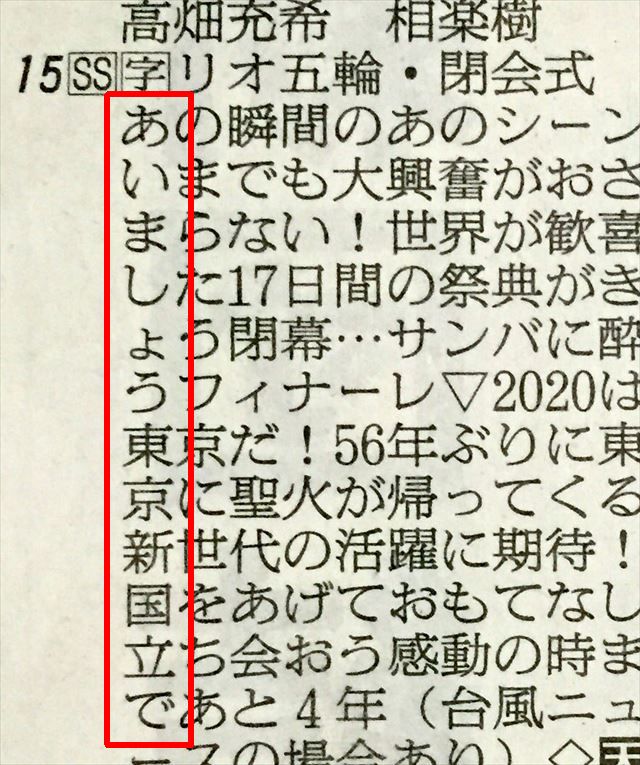 高畑充希　相楽樹
15 SS 字 リオ五輪・閉会式
あの瞬間のあのシーン
いまでも大興奮がおさ
まらない！世界が歓喜
した17日間の祭典がき
ょう閉幕…サンバに酔
うフィナーレ▽2020は
東京だ！56年ぶりに東
京に聖火が帰ってくる
新世代の活躍に期待！
国をあげておもてなし
立ち会おう感動の時ま
であと4年（台風ニュ
ースの場合あり）◇天